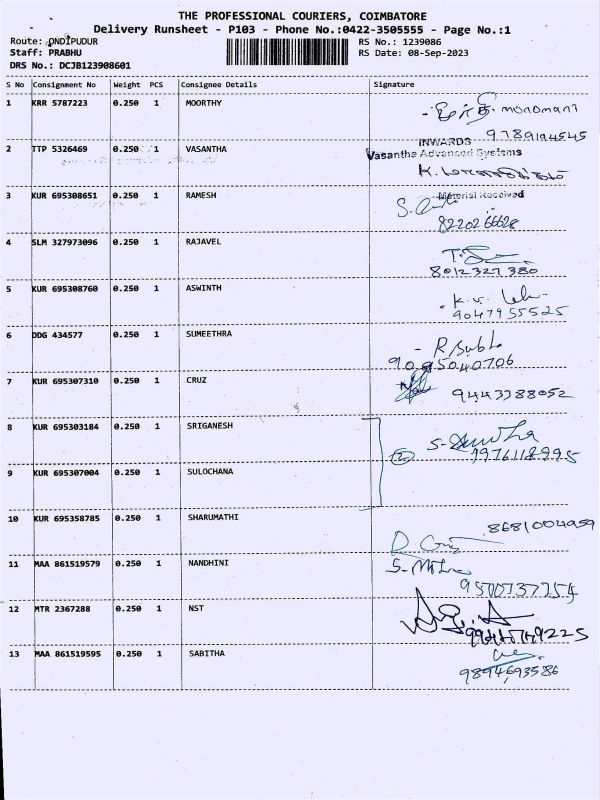 THE PROFESSIONAL COURIERS, COIMBATORE
Delivery Runsheet - P103 - Phone No.:0422-3505555 - Page No.:1
Route: ONDIPUDUR
Staff: PRABHU
DRS No.: DCJB123908601
RS No.: 1239086
RS Date: 08-Sep-2023
S No Consignment No Weight PCS Consignee Details Signature
1 KRR 5787223 0.250 1 MOORTHY
monomani
9789194545
2 TTP 5326469 0.250 1 VASANTHA
INWARDS
Vasantha Advanced Systems
K.
Material Received
3 KUR 695308651 0.250 1 RAMESH
8220266628
4 SLM 327973096 0.250 1 RAJAVEL
8012327380
5 KUR 695308760 0.250 1 ASWINTH
K.V.
9047955525
6 DDG 434577 0.250 1 SUMEETHRA
R/Subha
9095040706
7 KUR 695307310 0.250 1 CRUZ
9443388052
8 KUR 695303184 0.250 1 SRIGANESH
(2)
9 KUR 695307004 0.250 1 SULOCHANA
10 KUR 695358785 0.250 1 SHARUMATHI
8681004959
11 MAA 861519579 0.250 1 NANDHINI
9500737754
12 MTR 2367288 0.250 1 NST
13 MAA 861519595 0.250 1 SABITHA
9894693586